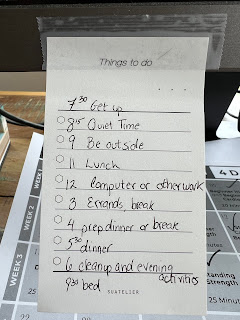 Things to do
7³⁰ Get up
8¹⁵ Quiet Time
9 Be outside
11 Lunch
12 computer or other work
3 Errands break
4 prep dinner or break
5³⁰ dinner
6 cleanup and evening activities
9³⁰ bed
SUATELIER
WEEK 1
WEEK 2
WEEK 3
4 D
Strength
25 Minut